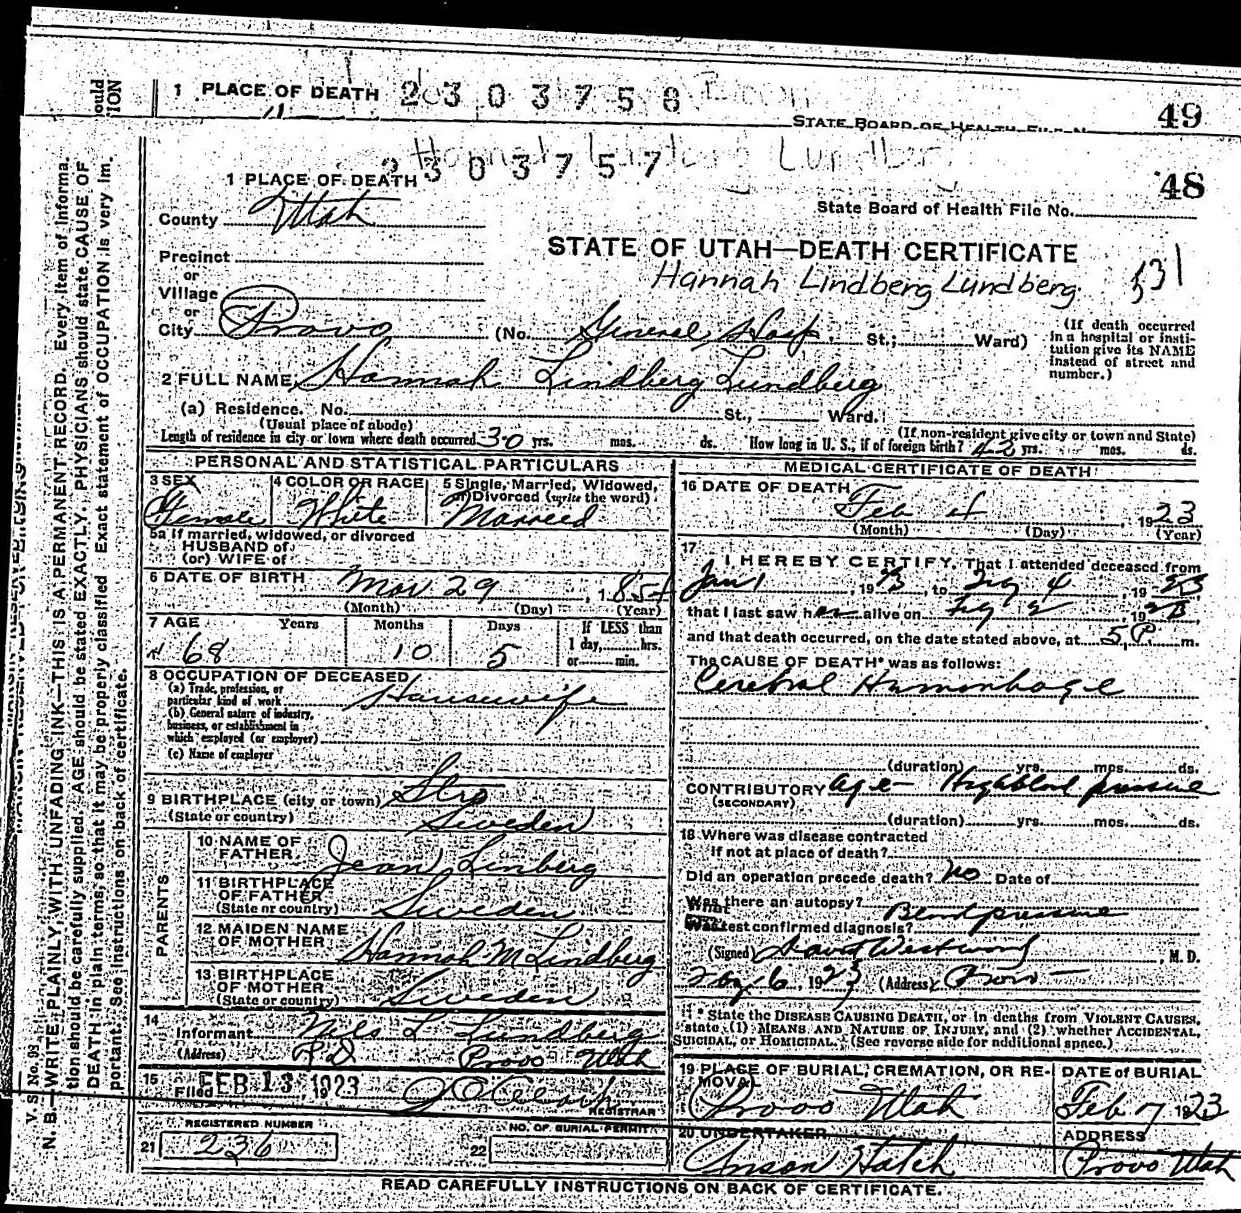 1 PLACE OF DEATH 2 3 0 3 7 5 8
49
STATE BOARD OF HEALTH FILE N
Hannah Lindberg Lundberg
2 3 0 3 7 5 7
1 PLACE OF DEATH
48
County Utah
State Board of Health File No.
STATE OF UTAH—DEATH CERTIFICATE
Precinct
or
Village
Hannah Lindberg Lundberg 531
or
City Provo (No. General Hosp. St.; Ward)
(If death occurred in a hospital or insti-
tution give its NAME
instead of street and
number.)
2 FULL NAME Hannah Lindberg Lundberg
(a) Residence. No. St., Ward.
(Usual place of abode) (If non-resident give city or town and State)
Length of residence in city or town where death occurred 30 yrs. mos. ds. How long in U. S., if of foreign birth? 42 yrs. mos. ds.
PERSONAL AND STATISTICAL PARTICULARS
3 SEX 4 COLOR OR RACE 5 Single, Married, Widowed,
or Divorced (write the word)
Female White Married
5a If married, widowed, or divorced
HUSBAND of
(or) WIFE of
6 DATE OF BIRTH Mar 29, 1854
(Month) (Day) (Year)
7 AGE Years Months Days If LESS than
1 day, hrs.
or min.
68 10 5
8 OCCUPATION OF DECEASED
(a) Trade, profession, or
particular kind of work Housewife
(b) General nature of industry,
business, or establishment in
which employed (or employer)
(c) Name of employer
9 BIRTHPLACE (city or town)
(State or country) Sweden
PARENTS
10 NAME OF
FATHER Jean Linberg
11 BIRTHPLACE
OF FATHER
(State or country) Sweden
12 MAIDEN NAME
OF MOTHER Hannah M Lindberg
13 BIRTHPLACE
OF MOTHER
(State or country) Sweden
14
Informant Nels L Lundberg
(Address) Provo Utah
15
Filed FEB 13, 1923
REGISTRAR
REGISTERED NUMBER NO. OF BURIAL PERMIT
21 236 22
MEDICAL CERTIFICATE OF DEATH
16 DATE OF DEATH
Feb 4, 1923
(Month) (Day) (Year)
17
I HEREBY CERTIFY, That I attended deceased from
Jan 1, 1923, to Feb 4, 1923
that I last saw her alive on Feb 2, 1923
and that death occurred, on the date stated above, at 5 P m.
The CAUSE OF DEATH* was as follows:
Cerebral Humorhage
(duration) yrs. mos. ds.
CONTRIBUTORY age - High blood pressure
(SECONDARY)
(duration) yrs. mos. ds.
18 Where was disease contracted
if not at place of death?
Did an operation precede death? No Date of
Was there an autopsy?
What test confirmed diagnosis? Blood pressure
(Signed) David Westwood, M. D.
Feb 6, 1923 (Address) Provo
* State the DISEASE CAUSING DEATH, or in deaths from VIOLENT CAUSES,
state (1) MEANS AND NATURE OF INJURY, and (2) whether ACCIDENTAL,
SUICIDAL, or HOMICIDAL. (See reverse side for additional space.)
19 PLACE OF BURIAL, CREMATION, OR RE-
MOVAL DATE of BURIAL
Provo Utah Feb 7 1923
20 UNDERTAKER ADDRESS
Anson Hatch Provo Utah
READ CAREFULLY INSTRUCTIONS ON BACK OF CERTIFICATE.
V. S. No. 93
N. B.—WRITE PLAINLY, WITH UNFADING INK—THIS IS A PERMANENT RECORD. Every item of informa-
tion should be carefully supplied. AGE should be stated EXACTLY. PHYSICIANS should state CAUSE OF
DEATH in plain terms, so that it may be properly classified. Exact statement of OCCUPATION is very im-
portant. See instructions on back of certificate.